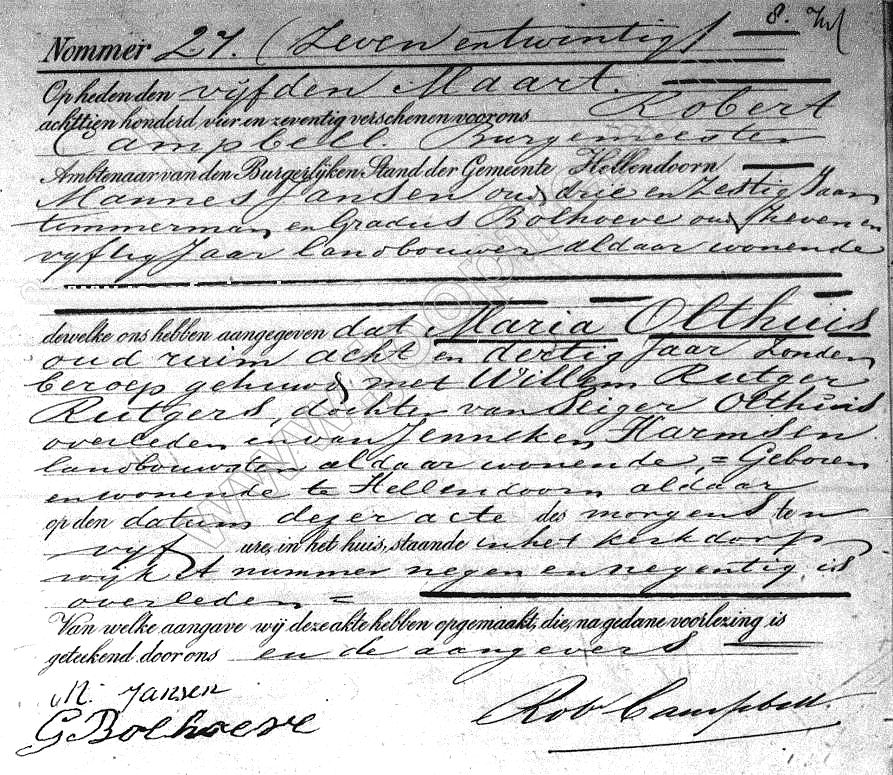 8.
Nommer 27. (Zeven en twintig)
Op heden den vijfden Maart.
achttien honderd vier en zeventig verschenen voor ons Robert
Campbell. Burgemeester
Ambtenaar van den Burgerlijken Stand der Gemeente Hellendoorn
Mannes Jansen oud drie en Zestig Jaar
timmerman en Gradus Bolhoeve oud Zeven en
vyftig Jaar landbouwer aldaar wonende
dewelke ons hebben aangegeven dat Maria Olthuis
oud ruim acht en dertig Jaar Zonder
beroep gehuwd met Willem Rutger
Rutgers, dochter van Seiger Olthuis
overleden en van Jenneken Harmsen
landbouwster aldaar wonende, = Geboren
en wonende te Hellendoorn aldaar
op den datum dezer acte des morgens ten
vyf ure, in het huis, staande in het kerkdorp
wijk A nummer negen en negentig is
overleden =
Van welke aangave wij deze akte hebben opgemaakt, die, na gedane voorlezing is
geteekend door ons en de aangevers
M. Jansen
G Bolhoeve
Rob Campbell.